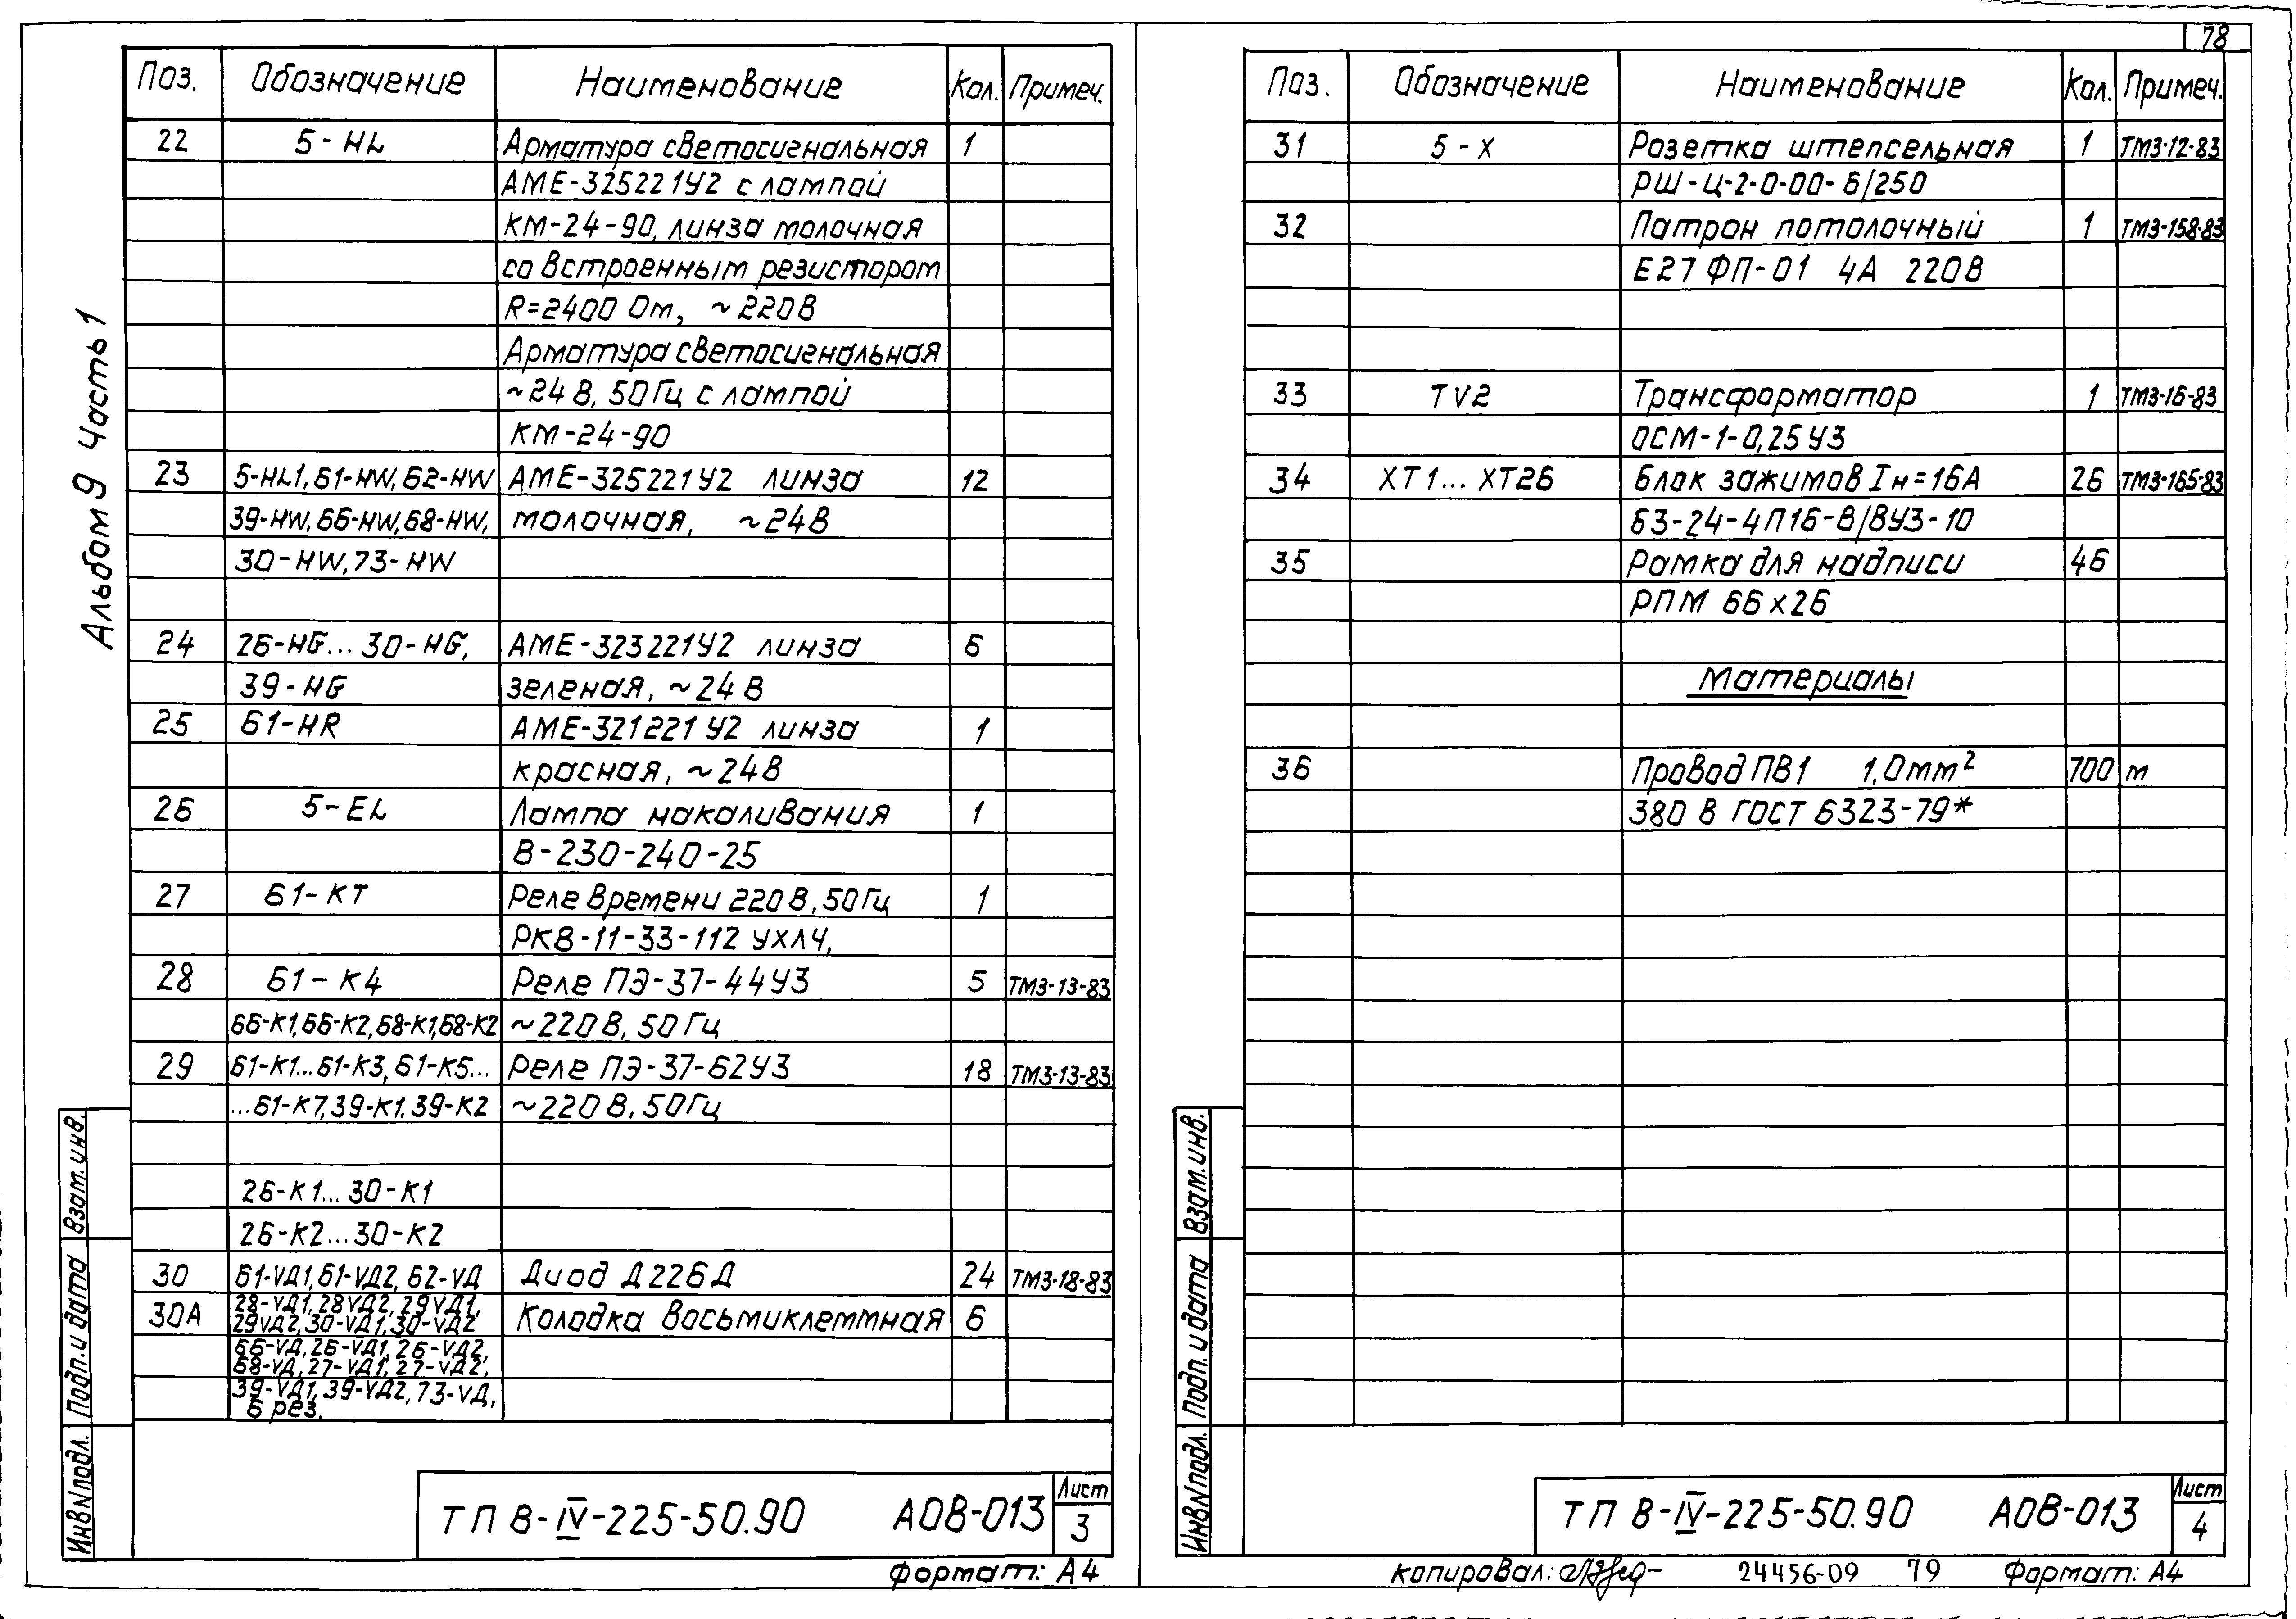 78
Альбом 9 Часть 1
Поз. Обозначение Наименование Кол. Примеч.
22 5-HL Арматура светосигнальная 1
АМЕ-325221У2 с лампой
КМ-24-90, линза молочная
со встроенным резистором
R=2400 Ом, ~220В
Арматура светосигнальная
~24В, 50Гц с лампой
КМ-24-90
23 5-HL1, 61-HW, 62-HW АМЕ-325221У2 линза 12
39-HW, 66-HW, 68-HW, молочная, ~24В
30-HW, 73-HW
24 26-HG...30-HG, АМЕ-323221У2 линза 6
39-HG зеленая, ~24В
25 61-HR АМЕ-321221У2 линза 1
красная, ~24В
26 5-EL Лампа накаливания 1
В-230-240-25
27 61-КТ Реле времени 220В, 50Гц 1
РКВ-11-33-112 УХЛ4,
28 61-К4 Реле ПЭ-37-44У3 5 ТМ3-13-83
66-К1, 66-К2, 68-К1, 68-К2 ~220В, 50Гц
29 61-К1...61-К3, 61-К5... Реле ПЭ-37-62У3 18 ТМ3-13-83
...61-К7, 39-К1, 39-К2 ~220В, 50Гц
26-К1...30-К1
26-К2...30-К2
30 61-VД1, 61-VД2, 62-VД Диод Д226Д 24 ТМ3-18-83
30А 28-VД1, 28VД2, 29VД1, Колодка восьмиклеммная 6
29VД2, 30-VД1, 30-VД2
66-VД, 26-VД1, 26-VД2,
68-VД, 27-VД1, 27-VД2,
39-VД1, 39-VД2, 73-VД,
6 рез.
Взам. инв.
Подп. и дата
Инв N подл.
ТП В-IV-225-50.90 АОВ-013 Лист
3
Формат: А4
Поз. Обозначение Наименование Кол. Примеч.
31 5-Х Розетка штепсельная 1 ТМ3-12-83
РШ-Ц-2-0-00-6/250
32 Патрон потолочный 1 ТМ3-158-83
Е27 ФП-01 4А 220В
33 TV2 Трансформатор 1 ТМ3-16-83
ОСМ-1-0,25У3
34 ХТ1...ХТ26 Блок зажимов Iн=16А 26 ТМ3-165-83
БЗ-24-4П16-В/ВУ3-10
35 Рамка для надписи 46
РПМ 66х26
Материалы
36 Провод ПВ1 1,0мм² 700 м
380 В ГОСТ 6323-79*
Взам. инв.
Подп. и дата
Инв N подл.
ТП В-IV-225-50.90 АОВ-013 Лист
4
копировал: 24456-09 79 Формат: А4